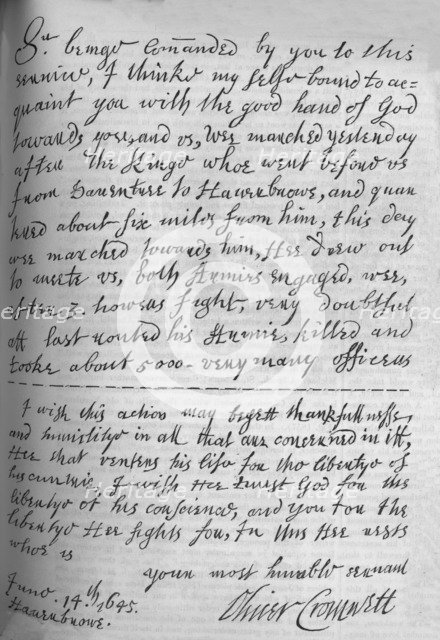 Sr. beinge Comanded by you to this
service, I thinke my selfe bound to ac=
quaint you with the good hand of God
towards you, and vs, Wee marched yesterday
after the Kinge whoe went before vs
from Dauentree to Hauerbrowe, and quar
tered about six miles from him, this day
wee marched towards him, Hee drew out
to meete vs, both Armies engaged, wee,
after 3 howers fight, very doubtful
att last routed his Armie, killed and
tooke about 5000 - very many officers
I wish this action may begett thankfullnesse,
and humilitye in all that are concerned in itt,
Hee that venters his life for the libertye of
his cuntrie, I wish Hee trust God for the
libertye of his conscience, and you for the
libertye Hee fights for, In this Hee rests
whoe is
your most humble servant
June. 14th. 1645.
Hauerbrowe.
Oliver Cromwell
Heritage
Images